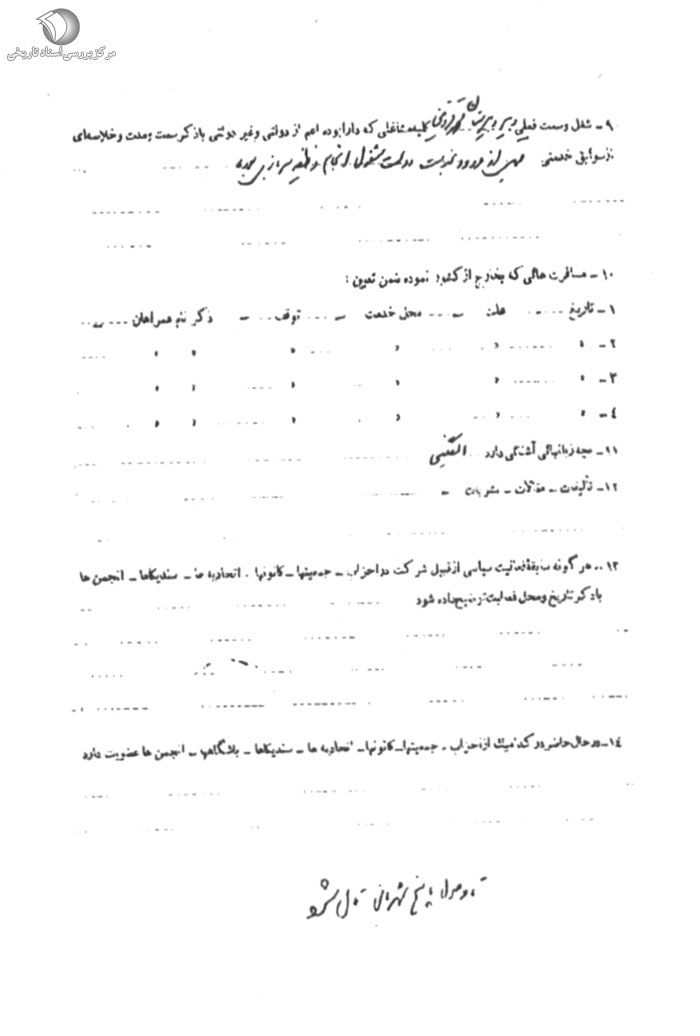 مرکز بررسی اسناد تاریخی
۹ - شغل وسمت فعلی دبیر دبیرستان کلیه مشاغلی که دارا بوده اعم از دولتی وغیر دولتی با ذکر سمت ومدت وخلاصه‌ای
از سوابق خدمتی. قبل از ورود بخدمت دولت مشغول انجام وظیفه سربازی بوده
۱۰ - مسافرت هائی که بخارج از کشور نموده ضمن تعیین :
۱ - تاریخ .... علت - ... محل خدمت - ... توقف ... - ذکر نام همراهان ... -
۲ - " " " " " "
۳ - " " " " " "
٤ - " " " " " "
۱۱ - بچه زبانهائی آشنائی دارد .. انگلیسی
۱۲ - تألیفات - مقالات - نشریات -
۱۳ - هرگونه سابقهٔ فعالیت سیاسی از قبیل شرکت در احزاب - جمعیتها - کانونها . اتحادیه ها - سندیکاها - انجمن ها
با ذکر تاریخ و محل فعالیت توضیح داده شود
۱٤ - در حال حاضر در کدامیک از احزاب . جمعیتها - کانونها - اتحادیه ها - سندیکاها - باشگاهها - انجمن ها عضویت دارد
تا وصول پاسخ شهربانی